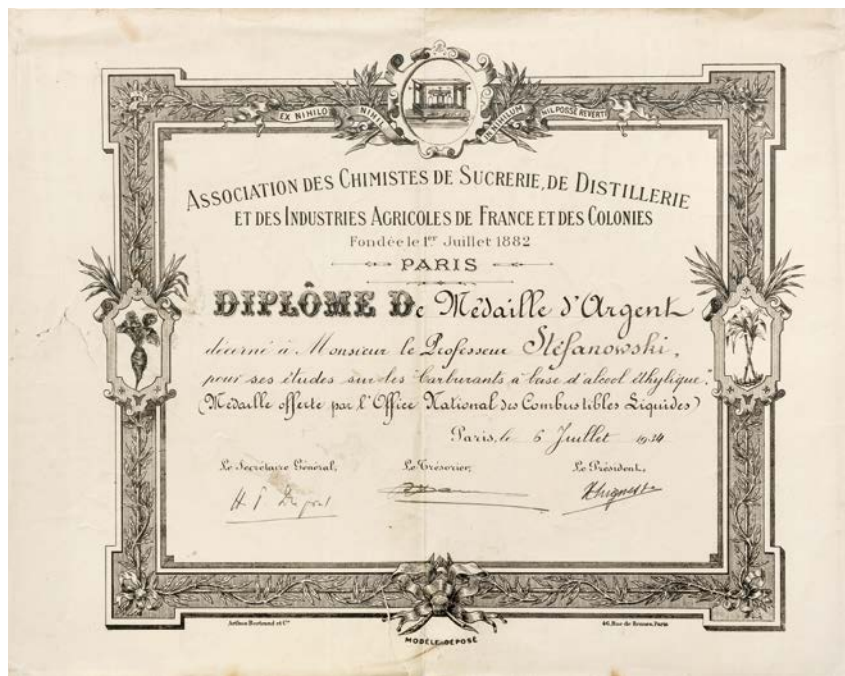 EX NIHILO NIHIL IN NIHILUM NIL POSSE REVERTI
ASSOCIATION DES CHIMISTES DE SUCRERIE, DE DISTILLERIE
ET DES INDUSTRIES AGRICOLES DE FRANCE ET DES COLONIES
Fondée le 1er Juillet 1882
PARIS
DIPLÔME De Médaille d'Argent
décerné à Monsieur le Professeur Stéfanowski,
pour ses études sur les "Carburants à base d'alcool éthylique."
(Médaille offerte par l'Office National des Combustibles Liquides)
Paris, le 6 Juillet 1934
Le Secrétaire Général, Le Trésorier, Le Président,
Arthus Bertrand et Cie 46, Rue de Rennes, Paris
MODÈLE DÉPOSÉ